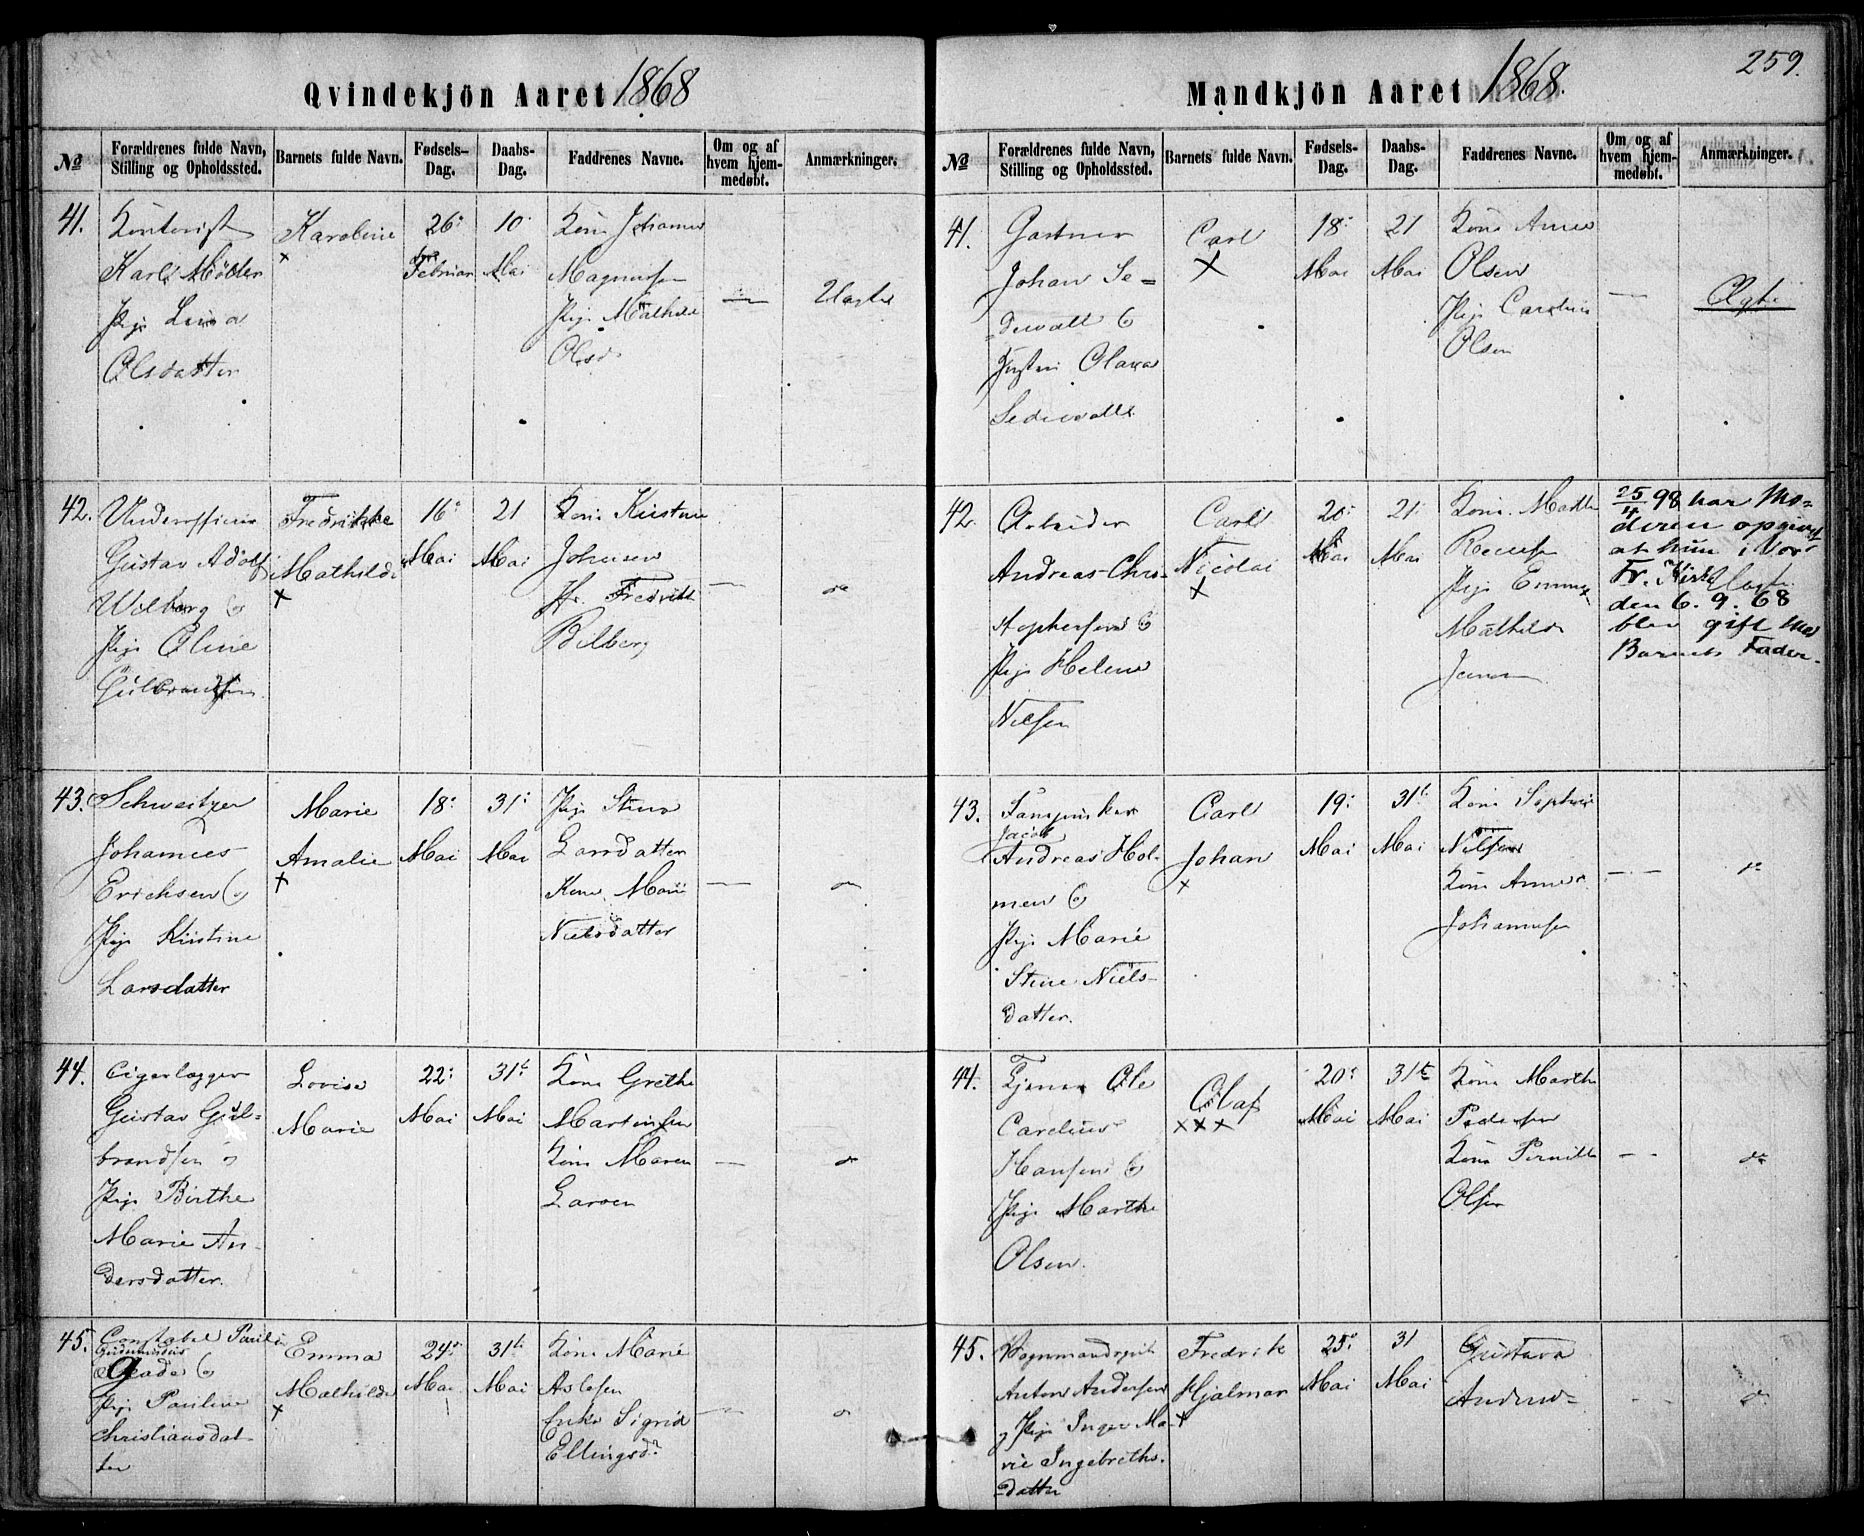 Qvindekjön Aaret 1868
№
Forældrenes fulde Navn,
Stilling og Opholdssted.
Barnets fulde Navn.
Fødsels-
Dag.
Daabs-
Dag.
Faddrenes Navne.
Om og af
hvem hjem-
medøbt.
Anmærkninger.
41.
Karl Møller
Pige
Olsdatter
Karoline
×
26
Februar
10
Mai
Kone Johanne
Magnusen
Pige Mathilde
Olsd
—
Uægte
42.
Underofficier
Gustav Adolf
Wilberg og
Pige Oline
Gulbrandsen
Fredrikke
Mathilde
×
16
Mai
21
Mai
Kone Kirstine
Johnsen
Hr. Fredrik
—
do
43.
Schweitzer
Johannes
Erichsen og
Pige Kirstine
Larsdatter
Marie
Amalie
+
18
Mai
31
Mai
Pige Stine
Larsdatter
Kone Marie
Nielsdatter
—
do
44.
Cigarlægger
Gustav Gul-
brandsen og
Pige Birthe
Marie An-
dersdatter.
Lovise
Marie
22
Mai
31t
Mai
Kone Grethe
Martinsen
Kone Maren
Larsen
—
do
45.
Constabel
og
Pige Pauline
Christiansdat-
ter
Emma
Mathilde
+
24
Mai
31t
Mai
Kone Marie
Aslesen
Enke Sigrid
Ellingsd
—
do
259.
Mandkjön Aaret 1868.
№
Forældrenes fulde Navn,
Stilling og Opholdssted.
Barnets fulde Navn.
Fødsels-
Dag.
Daabs-
Dag.
Faddrenes Navne.
Om og af
hvem hjem-
medøbt.
Anmærkninger.
41.
Gartner
Johan Se-
dewall &
Hustru Olava
Sedewall
Carl
×
18
Mai
21
Mai
Kone Anne
Olsen
Pige Caroline
Olsen
—
Ægte
42.
Arbeider
Andreas Chri-
stophersen &
Pige Helene
Nilsen
Carl
Nicolai
×
20
Mai
21
Mai
Kone
Pige Emma
Mathilde
Jensen
25/4 98 har Mo-
deren opgivet
at hun i Vor
Fr. Kirke
den 6. 9. 68
blev gift med
Barnets Fader.
43.
Jacob
Andreas Hol-
men &
Pige Marie
Stine Niels-
datter.
Carl
Johan
×
19
Mai
31t
Mai
Kone Sophie
Nilsen
Kone Anne
Johannesen
—
do
44.
Tjener Ole
Carelius
Hansen &
Pige Marthe
Olsen.
Olaf
×××
20
Mai
31te
Mai
Kone Marthe
Pedersen
Kone Pernille
Olsen
— -
do
45.
Vognmandsgut
Anton Andersen
og Pige Inger Ma-
rie Ingebreths-
datter
Fredrik
Hjalmar
+
25
Mai
31
Mai
Gustava
Andersen
- -
do